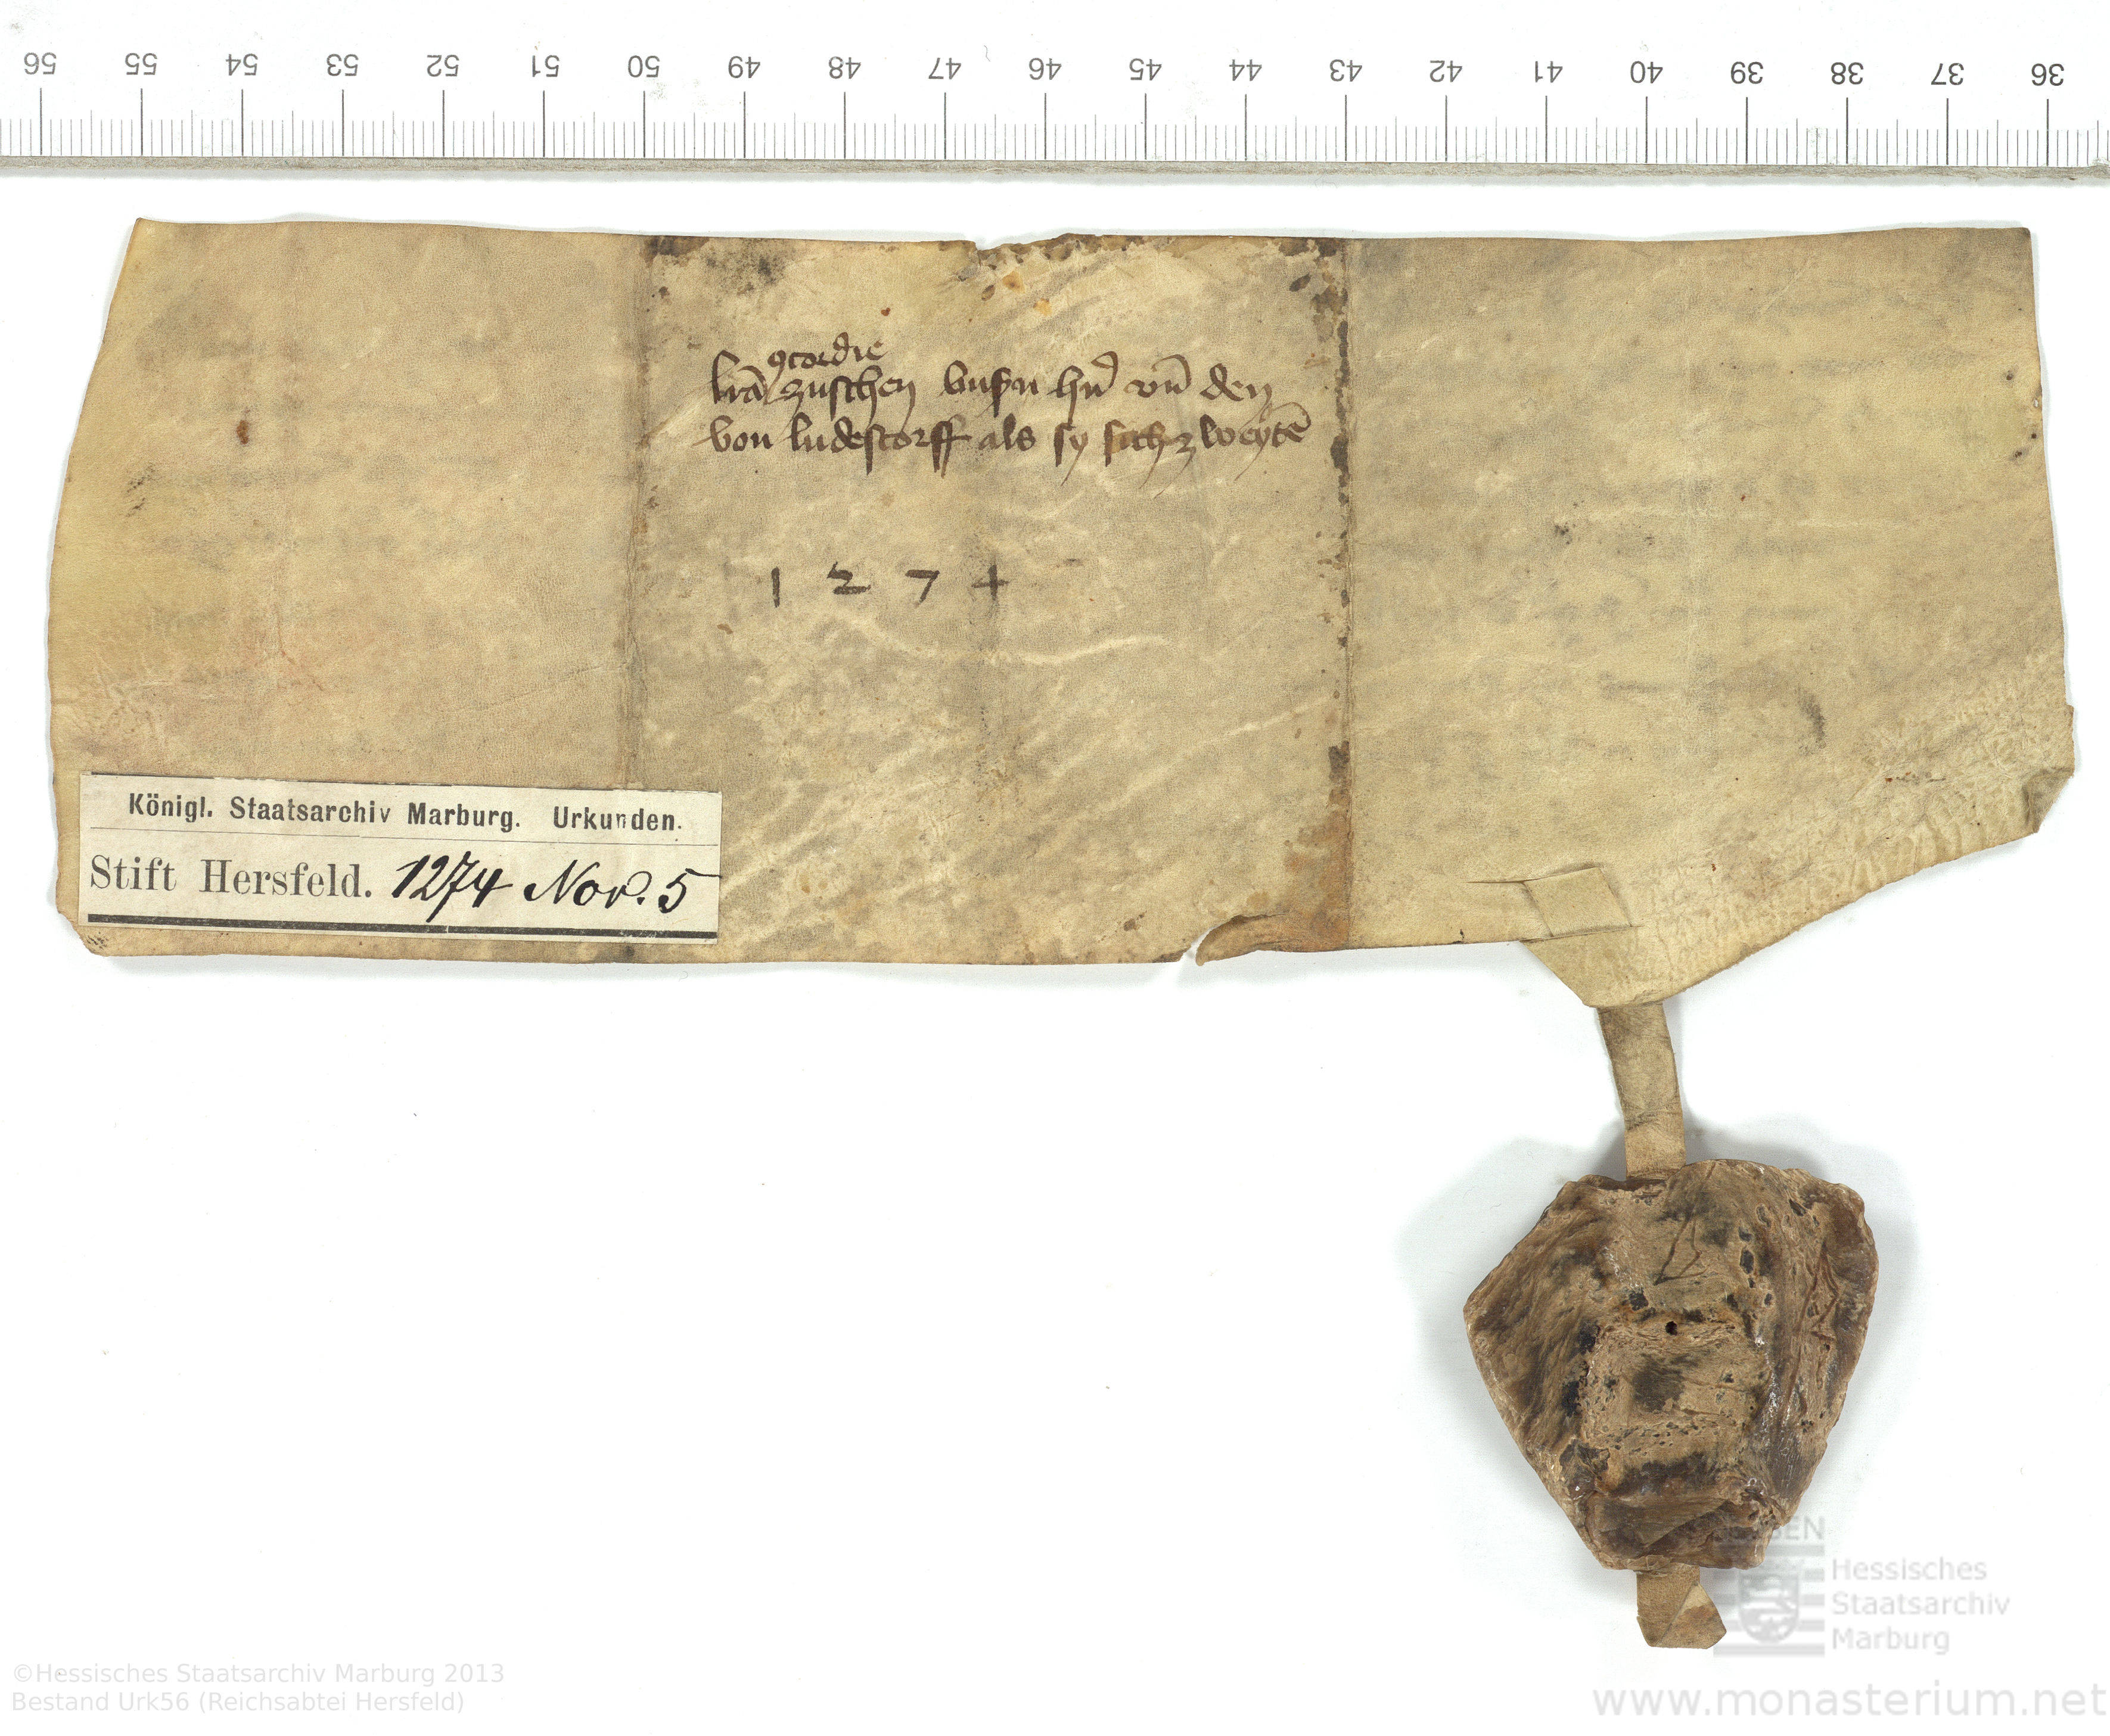 56 55 54 53 52 51 50 49 48 47 46 45 44 43 42 41 40 39 38 37 36
ꝯcordie
lrā zuschen vnsɲ hɲ̄ vn̄ den
von ludestorff als sy sich zweytē
1 2 7 4
Königl. Staatsarchiv Marburg. Urkunden.
Stift Hersfeld. 1274 Nov. 5
Hessisches
Staatsarchiv
Marburg
©Hessisches Staatsarchiv Marburg 2013
Bestand Urk56 (Reichsabtei Hersfeld)
www.monasterium.net